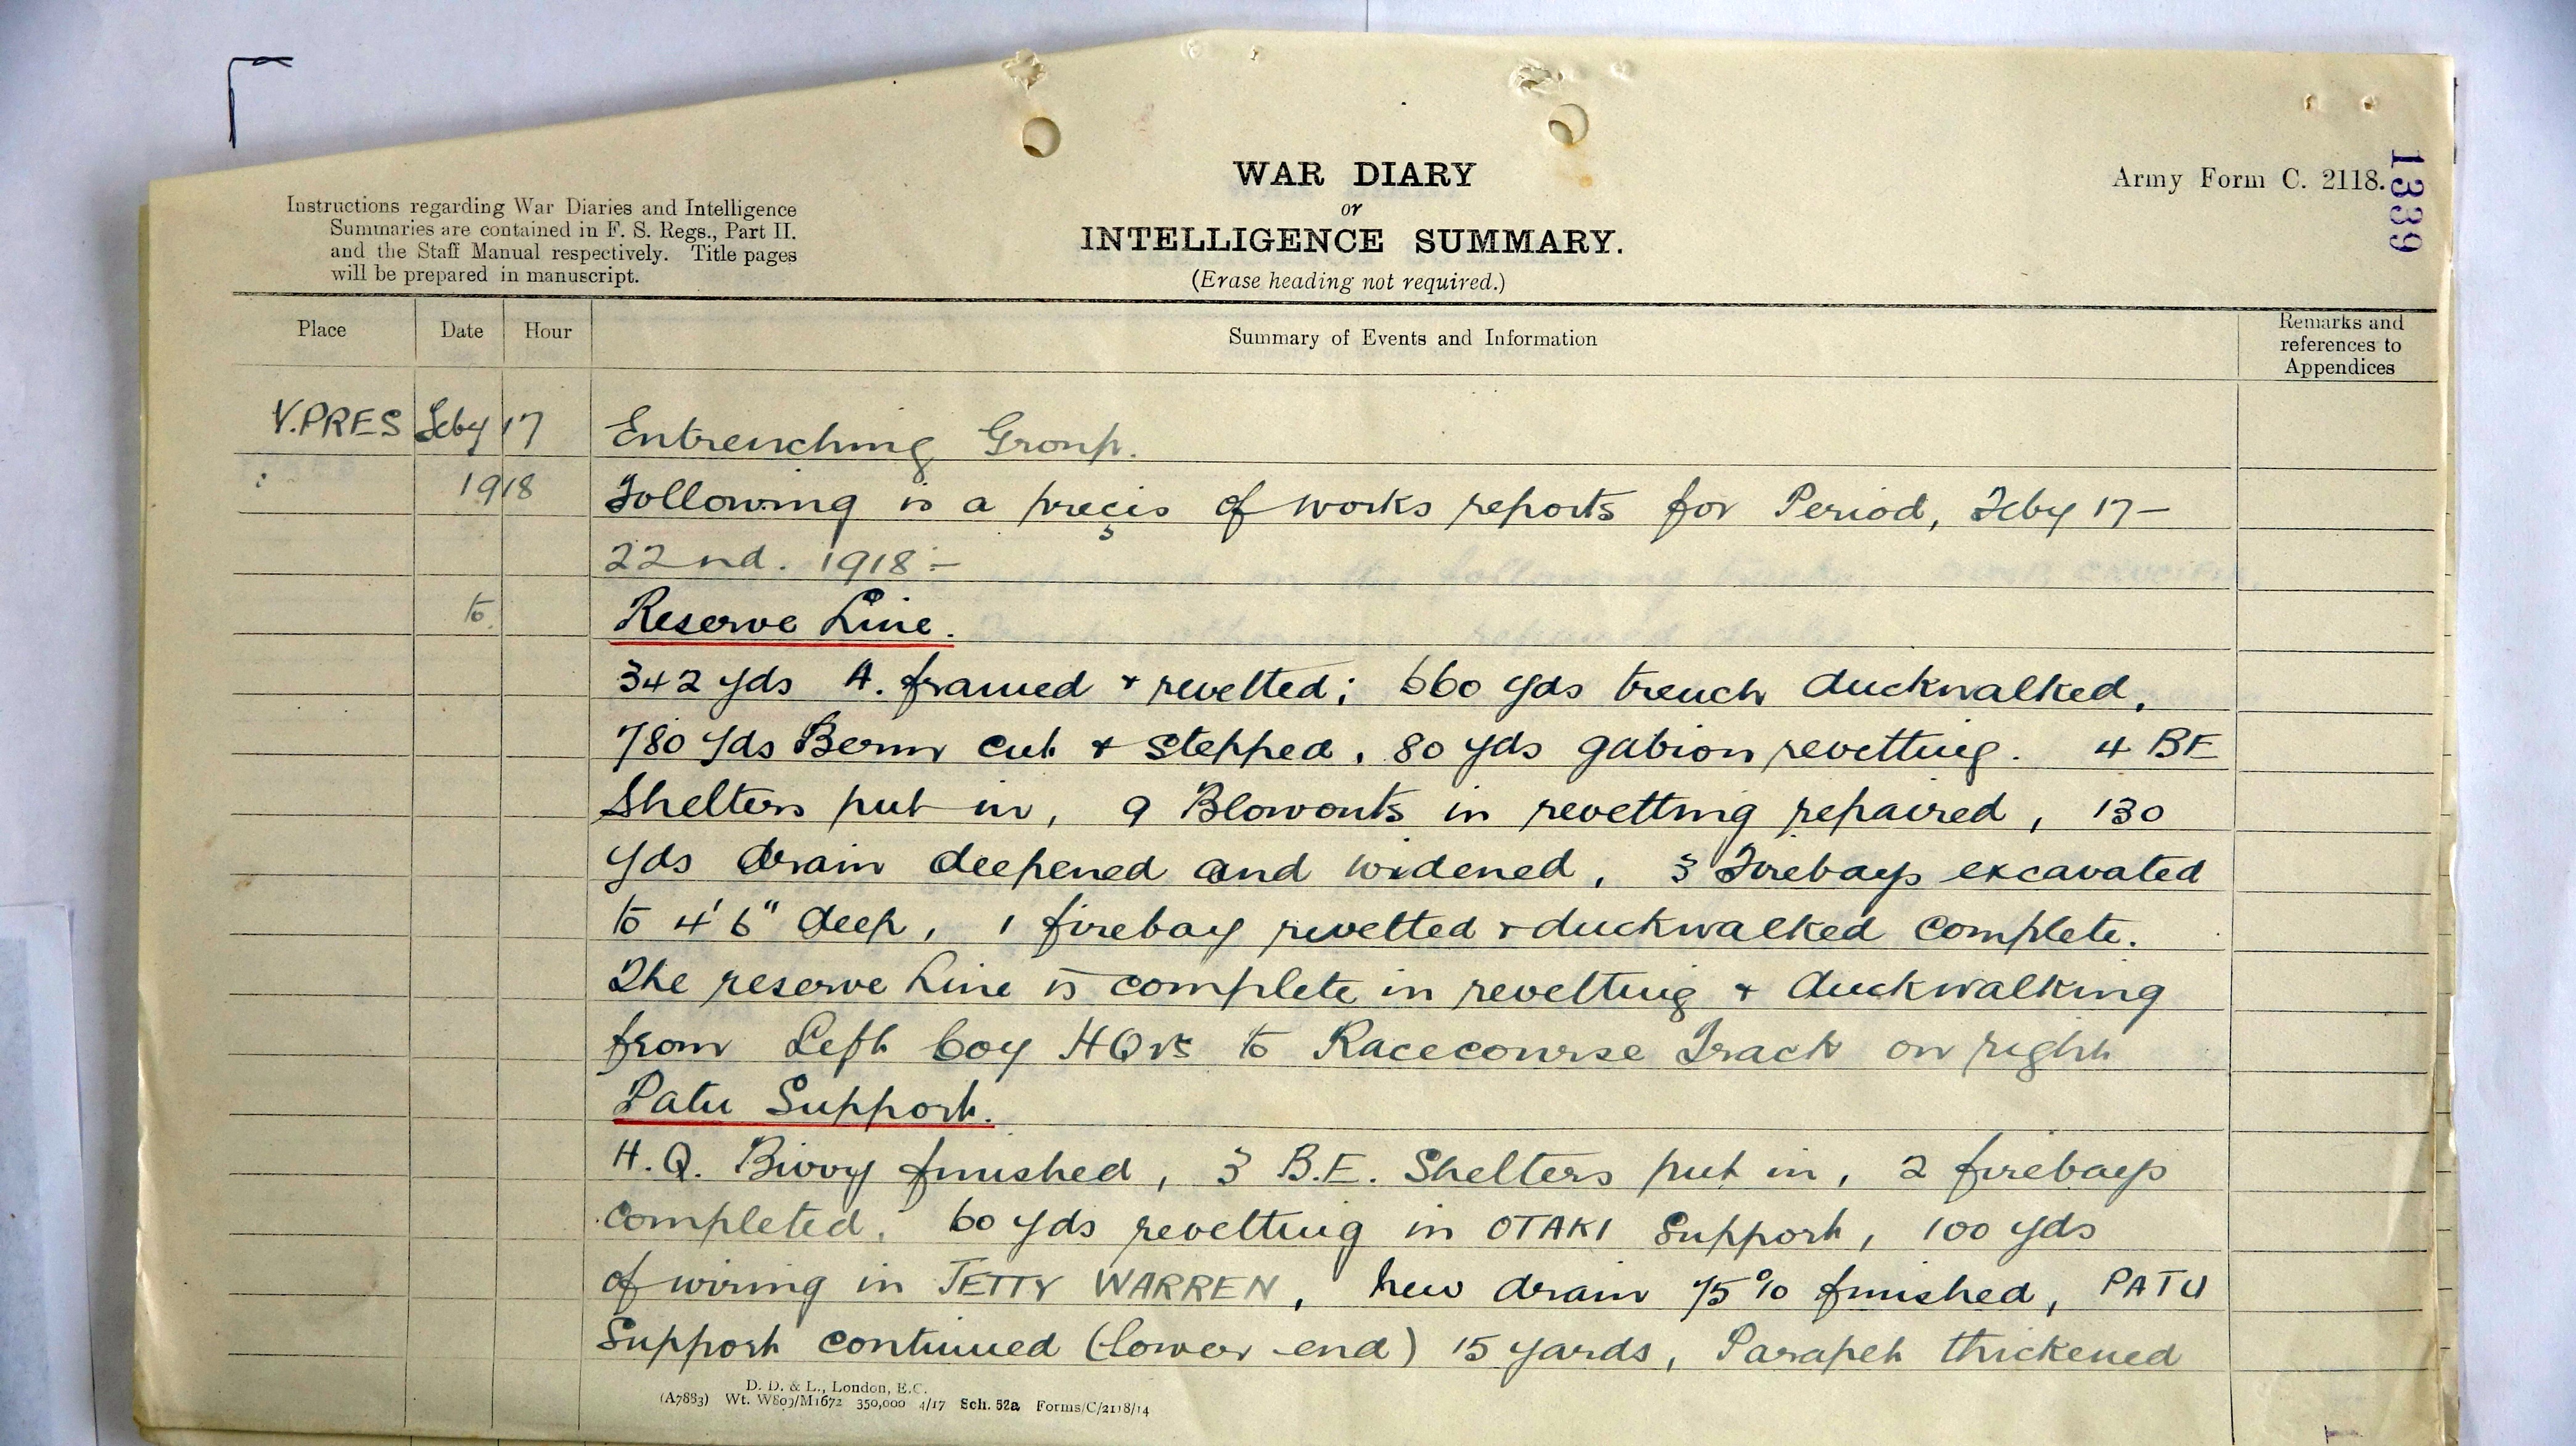 WAR DIARY
or
INTELLIGENCE SUMMARY.
(Erase heading not required.)
Army Form C. 2118.
1339
Instructions regarding War Diaries and Intelligence
Summaries are contained in F. S. Regs., Part II.
and the Staff Manual respectively. Title pages
will be prepared in manuscript.
Place Date Hour Summary of Events and Information Remarks and references to Appendices
Y.PRES Feby 17 Entrenching Group.
1918 Following is a preçis of works reports for Period, Feby 17-
22nd. 1918:-
to. Reserve Line.
342 yds A. framed + revetted; 660 yds trench duckwalked,
780 yds Berm cut + stepped, 80 yds gabion revetting. 4 BE
Shelters put in, 9 Blowouts in revetting repaired, 130
yds drain deepened and widened, 3 Firebays excavated
to 4'6" deep, 1 firebay rivetted + duckwalked complete.
The reserve Line is complete in revetting + duckwalking
from Left Coy HQrs to Racecourse Track on right
Patu Support.
H.Q. Bivvy finished, 3 B.E. Shelters put in, 2 firebays
completed, 60 yds revetting in OTAKI Support, 100 yds
of wiring in JETTY WARREN, new drain 75% finished, PATU
Support continued (lower end) 15 yards, Parapet thickened
D. D. & L., London, E.C.
(A7883) Wt. W809/M1672 350,000 4/17 Sch. 52a Forms/C/2118/14